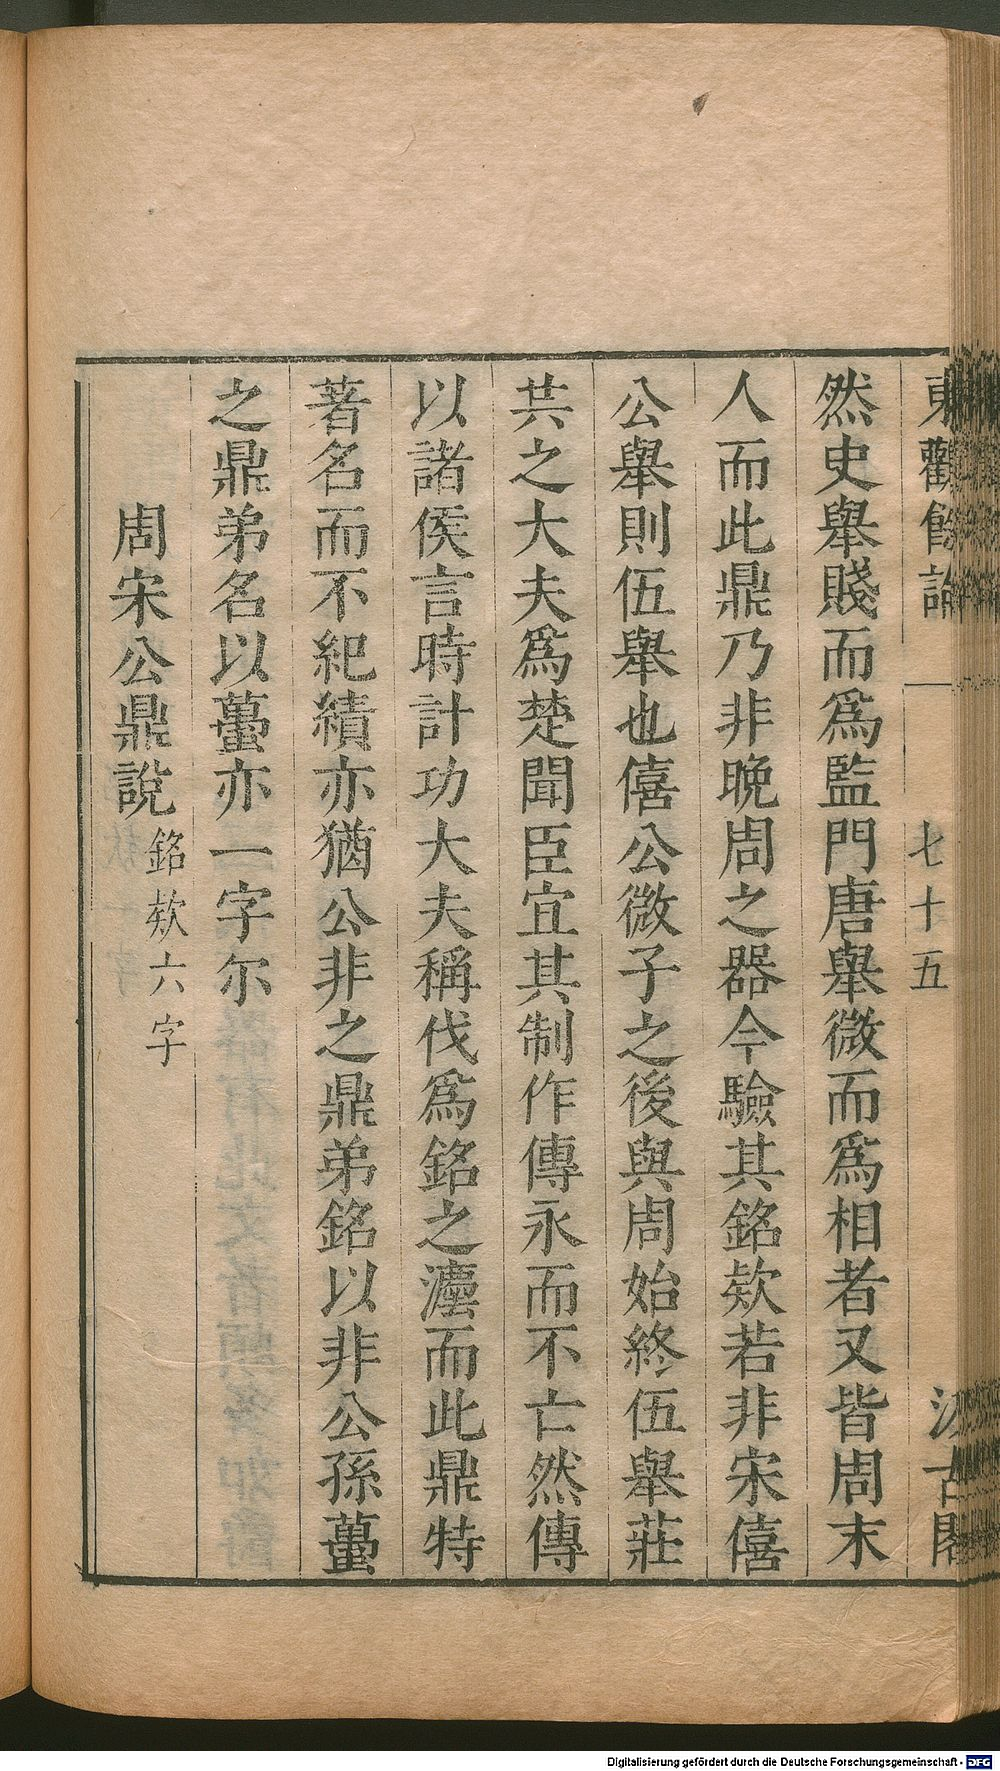 東觀餘論
七十五
汲古閣
然史舉賤而爲監門唐舉微而爲相者又皆周末
人而此鼎乃非晚周之器今驗其銘欵若非宋僖
公舉則伍舉也僖公微子之後與周始終伍舉莊
共之大夫爲楚聞臣宜其制作傳永而不亡然傳
以諸侯言時計功大夫稱伐爲銘之灋而此鼎特
著名而不紀績亦猶公非之鼎弟銘以非公孫蠆
之鼎弟名以蠆亦一字尔
周宋公鼎說
銘欵六字
Digitalisierung gefördert durch die Deutsche Forschungsgemeinschaft - DFG